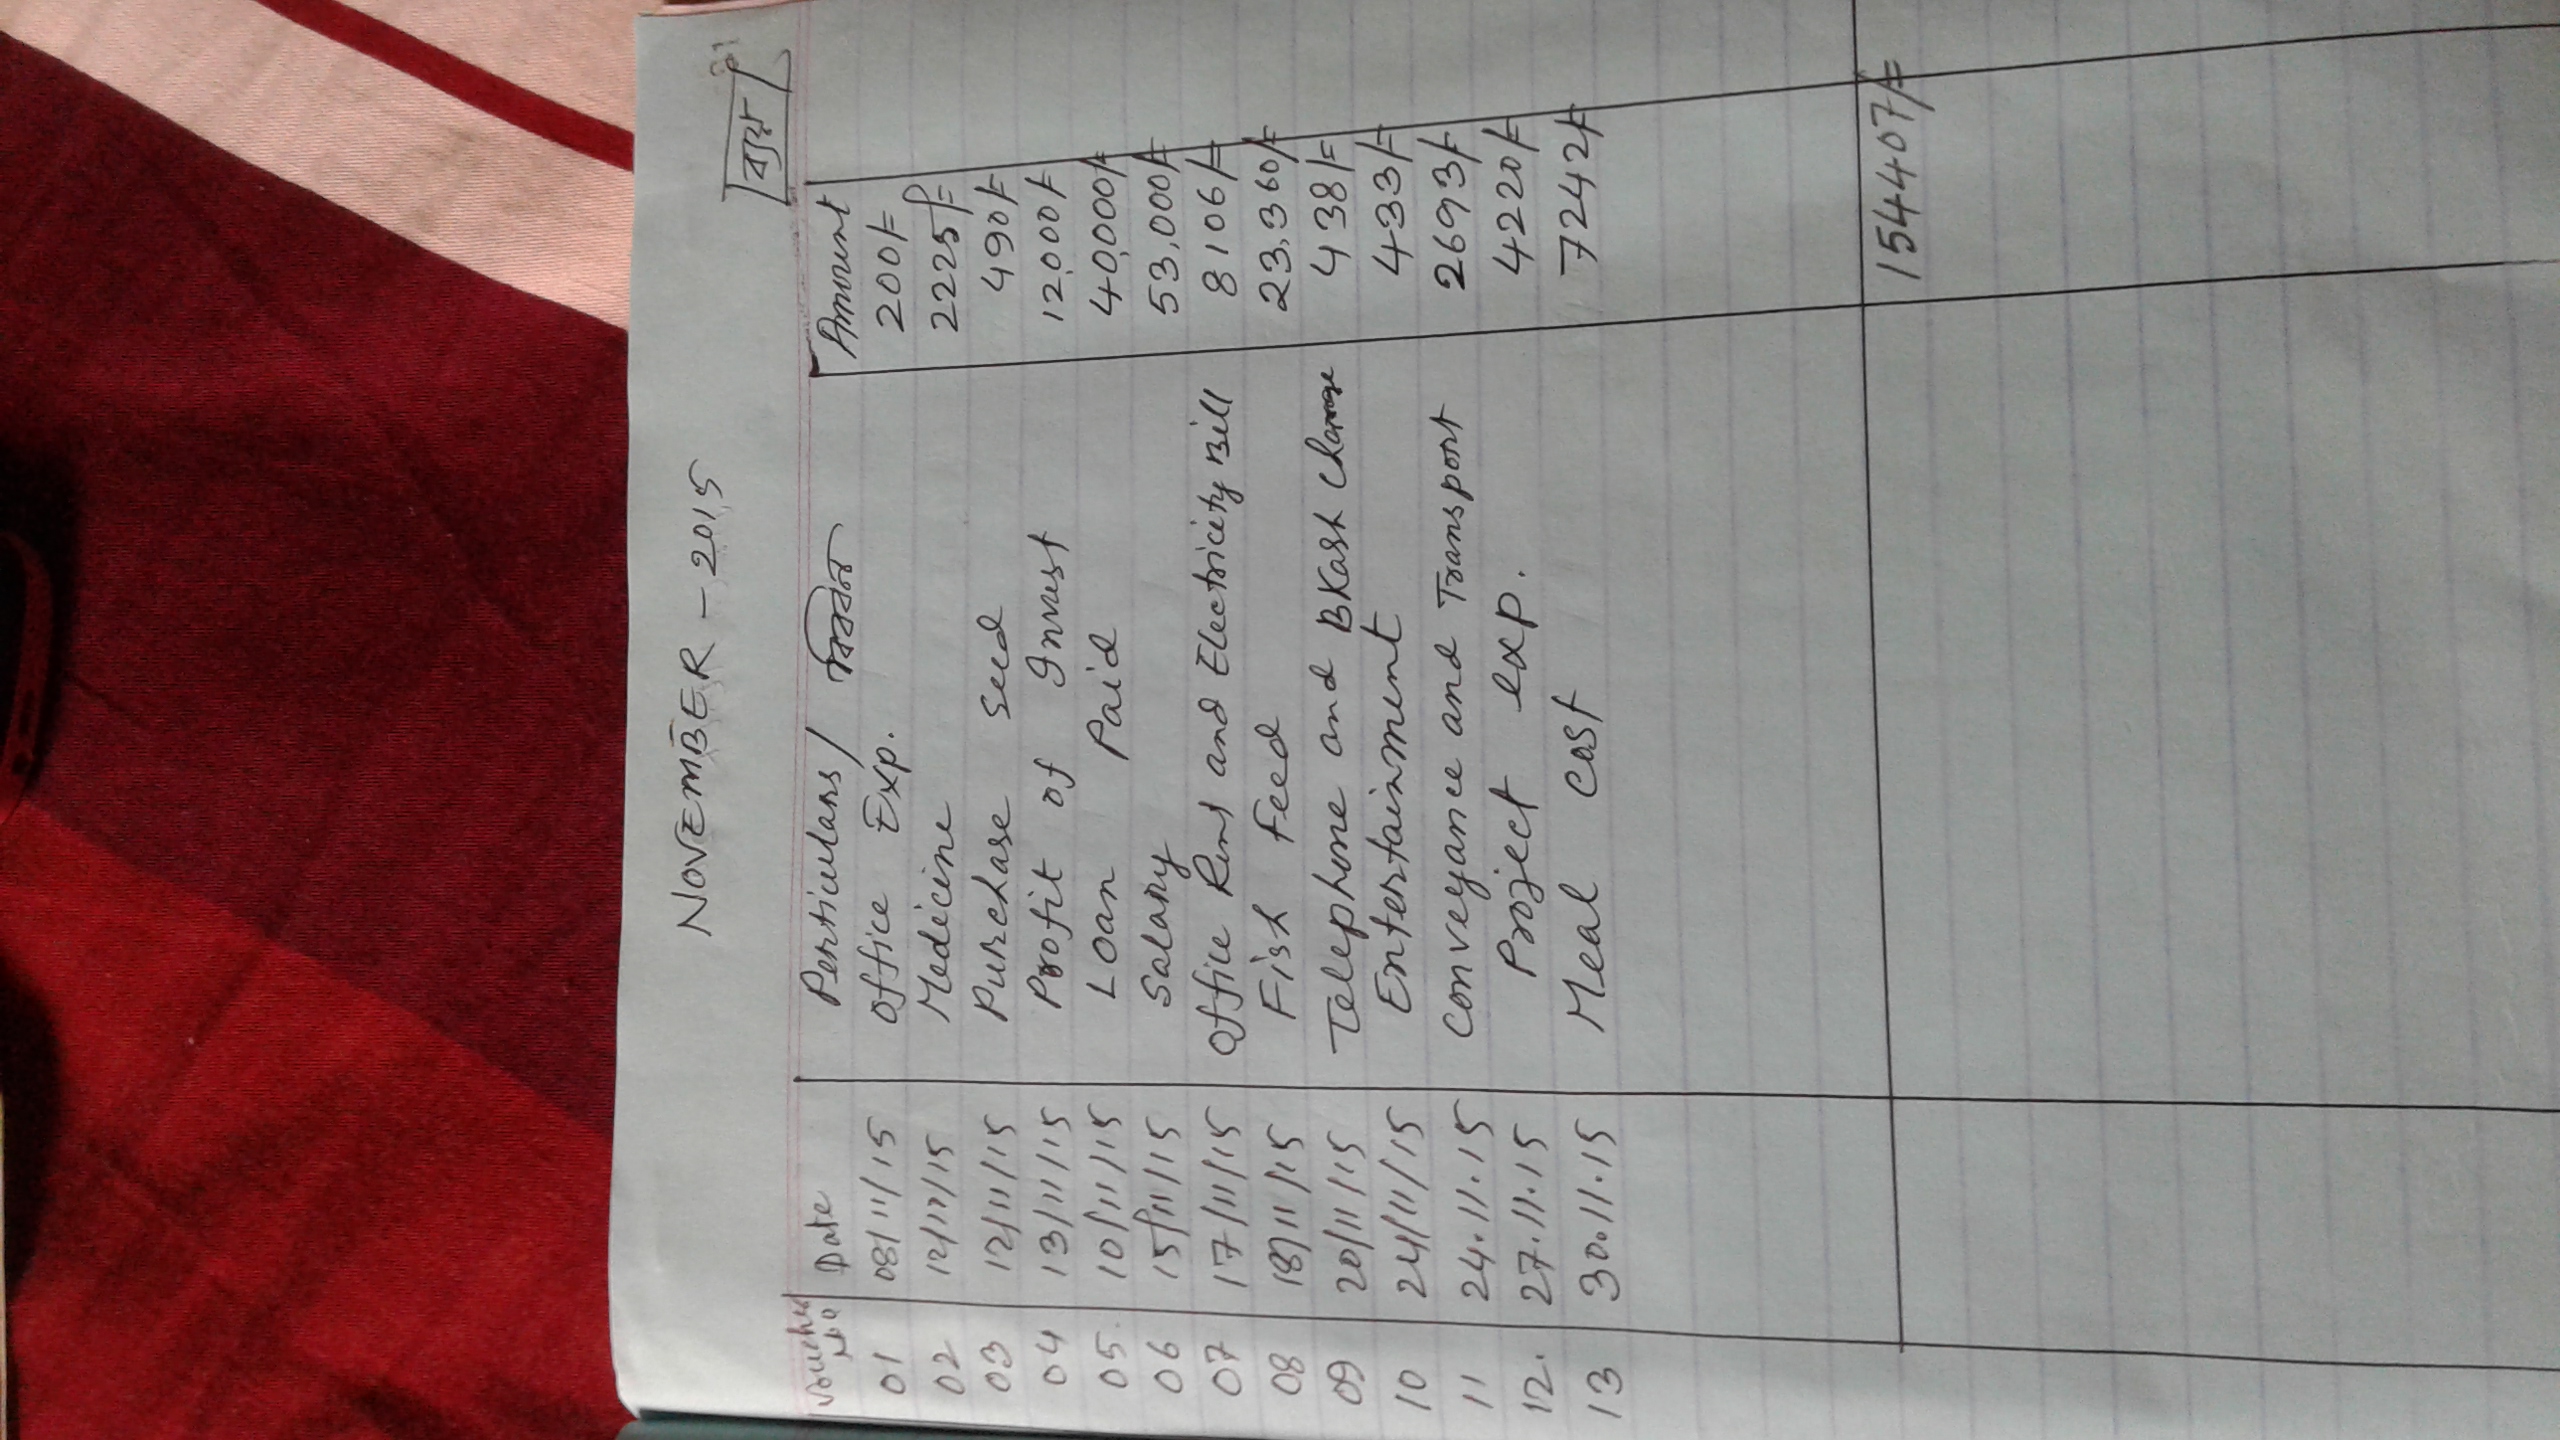 NOVEMBER - 2015
ব্যয়
Voucher No Date Perticulars / বিবরন Amount
01 08/11/15 Office Exp. 200/=
02 12/11/15 Medicine 2225/=
03 12/11/15 Purchase Seed 490/=
04 13/11/15 Profit of Invest 12,000/=
05. 10/11/15 Loan Paid 40,000/=
06 15/11/15 Salary 53,000/=
07 17/11/15 Office Rent and Electricity Bill 8106/=
08 18/11/15 Fish Feed 23,360/=
09 20/11/15 Telephone and BKash Charge 438/=
10 24/11/15 Entertainment 433/=
11 24.11.15 Conveyance and Transport 2693/=
12. 27.11.15 Project exp. 4220/=
13 30.11.15 Meal cost 7242/=
154407/=